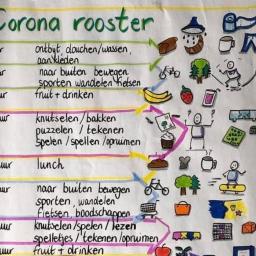 Corona rooster
ur ontbijt douchen/wassen,
aankleden
ur naar buiten bewegen
sporten wandelen fietsen
ur fruit + drinken
ur knutselen / bakken
puzzelen / tekenen
spelen / spellen / opruimen
uur lunch
uur naar buiten bewegen
sporten, wandelen
fietsen, boodschappen
uur knutselen / spelen / lezen
spelletjes / tekenen / opruimen
uur fruit + drinken